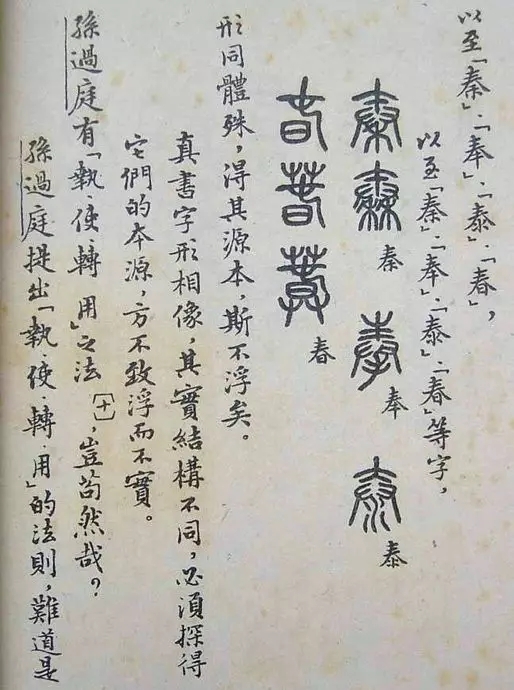 以至「秦」·「奉」·「泰」·「春」，
以至「秦」·「奉」·「泰」·「春」等字，
秦 奉 泰
春
形同體殊，得其源本，斯不浮矣。
真書字形相像，其實結構不同，必須探得
它們的本源，方不致浮而不實。
孫過庭有「執·使·轉·用」之法〔十〕，豈苟然哉？
孫過庭提出「執·使·轉·用」的法則，難道是